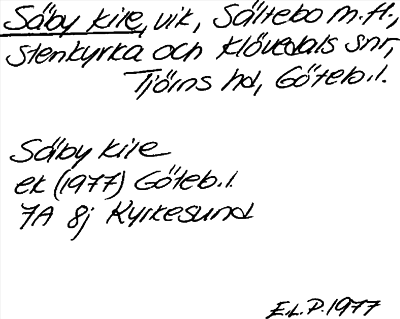 Säby kile, vik, Sältebo m.fl.,
Stenkyrka och Klövedals snr,
Tjörns hd, Göteb.l.
Säby kile
ek (1977) Göteb.l.
7A 8j Kyrkesund
E.L.P. 1977